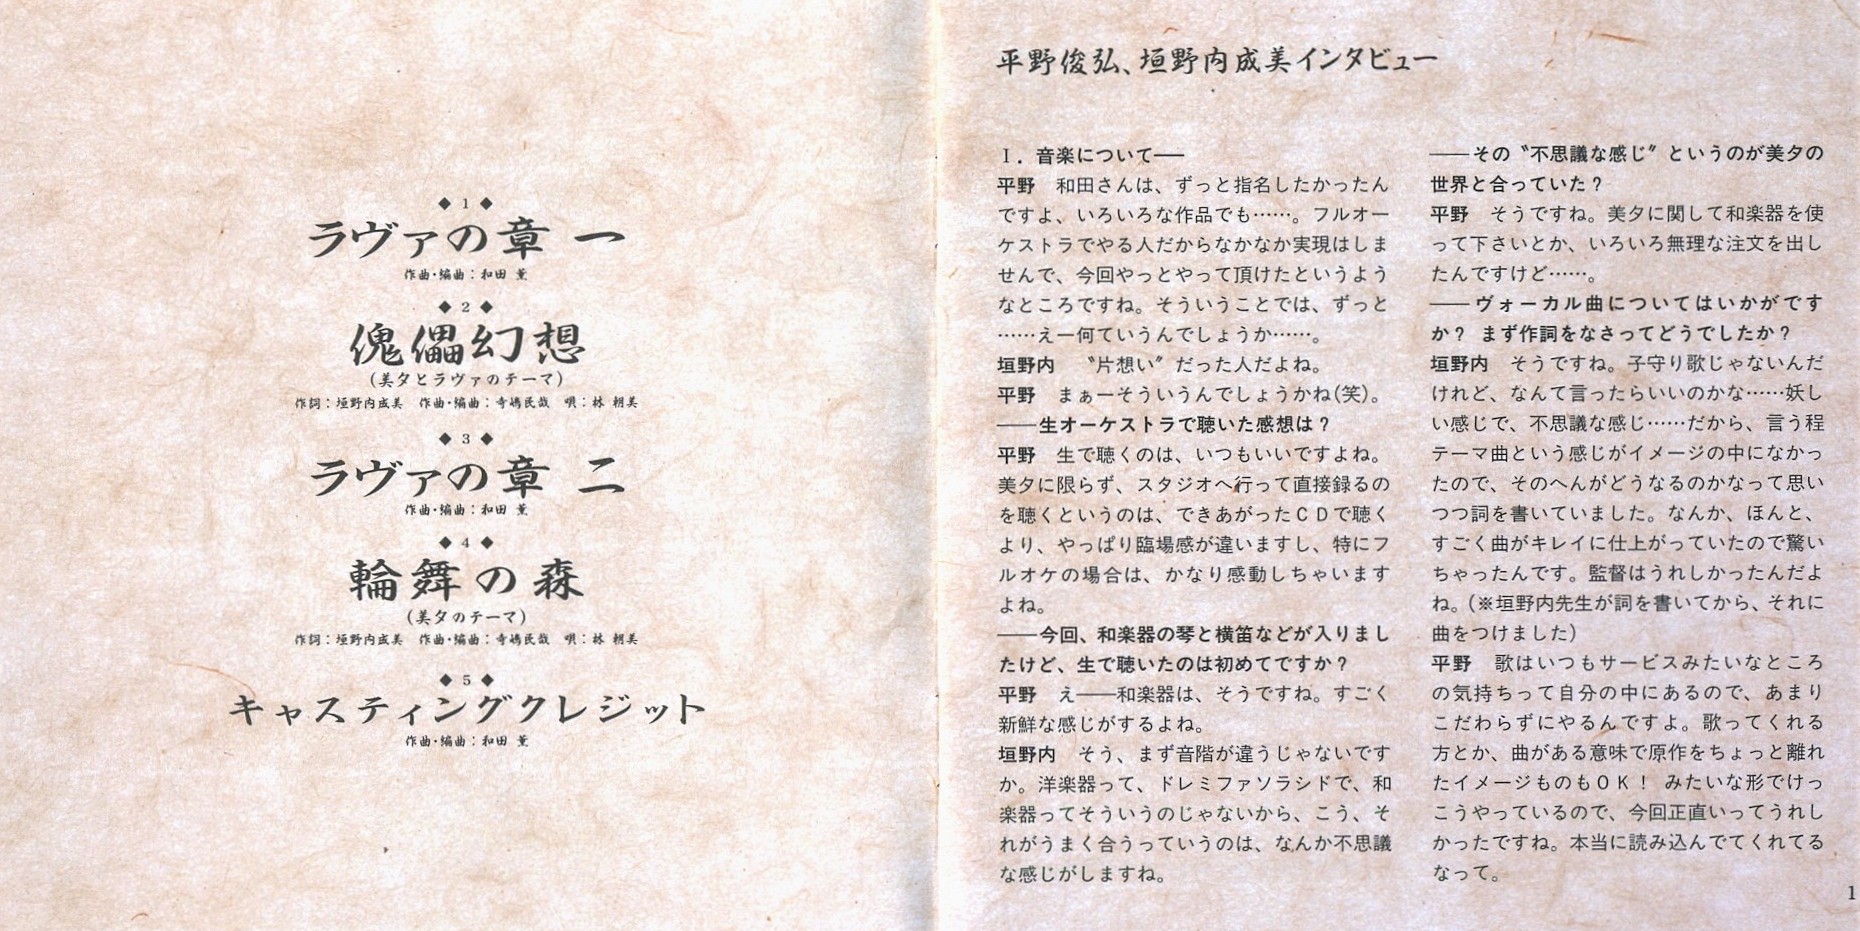 ◆ 1 ◆
ラヴァの章 一
作曲・編曲：和田 薫
◆ 2 ◆
傀儡幻想
(美夕とラヴァのテーマ)
作詞：垣野内成美　作曲・編曲：寺嶋民哉　唄：林 朝美
◆ 3 ◆
ラヴァの章 二
作曲・編曲：和田 薫
◆ 4 ◆
輪舞の森
(美夕のテーマ)
作詞：垣野内成美　作曲・編曲：寺嶋民哉　唄：林 朝美
◆ 5 ◆
キャスティングクレジット
作曲・編曲：和田 薫
平野俊弘、垣野内成美インタビュー
Ⅰ．音楽について──
平野　和田さんは、ずっと指名したかったん
ですよ、いろいろな作品でも……。フルオー
ケストラでやる人だからなかなか実現はしま
せんで、今回やっとやって頂けたというよう
なところですね。そういうことでは、ずっと
……えー何ていうんでしょうか……。
垣野内　〝片想い〞だった人だよね。
平野　まぁーそういうんでしょうかね(笑)。
──生オーケストラで聴いた感想は？
平野　生で聴くのは、いつもいいですよね。
美夕に限らず、スタジオへ行って直接録るの
を聴くというのは、できあがったＣＤで聴く
より、やっぱり臨場感が違いますし、特にフ
ルオケの場合は、かなり感動しちゃいます
よね。
──今回、和楽器の琴と横笛などが入りまし
たけど、生で聴いたのは初めてですか？
平野　え──和楽器は、そうですね。すごく
新鮮な感じがするよね。
垣野内　そう、まず音階が違うじゃないです
か。洋楽器って、ドレミファソラシドで、和
楽器ってそういうのじゃないから、こう、そ
れがうまく合うっていうのは、なんか不思議
な感じがしますね。
──その〝不思議な感じ〞というのが美夕の
世界と合っていた？
平野　そうですね。美夕に関して和楽器を使
って下さいとか、いろいろ無理な注文を出し
たんですけど……。
──ヴォーカル曲についてはいかがです
か？ まず作詞をなさってどうでしたか？
垣野内　そうですね。子守り歌じゃないんだ
けれど、なんて言ったらいいのかな……妖し
い感じで、不思議な感じ……だから、言う程
テーマ曲という感じがイメージの中になかっ
たので、そのへんがどうなるのかなって思い
つつ詞を書いていました。なんか、ほんと、
すごく曲がキレイに仕上がっていたので驚い
ちゃったんです。監督はうれしかったんだよ
ね。(※垣野内先生が詞を書いてから、それに
曲をつけました)
平野　歌はいつもサービスみたいなところ
の気持ちって自分の中にあるので、あまり
こだわらずにやるんですよ。歌ってくれる
方とか、曲がある意味で原作をちょっと離れ
たイメージものもＯＫ！ みたいな形でけっ
こうやっているので、今回正直いってうれし
かったですね。本当に読み込んでてくれてる
なって。
1